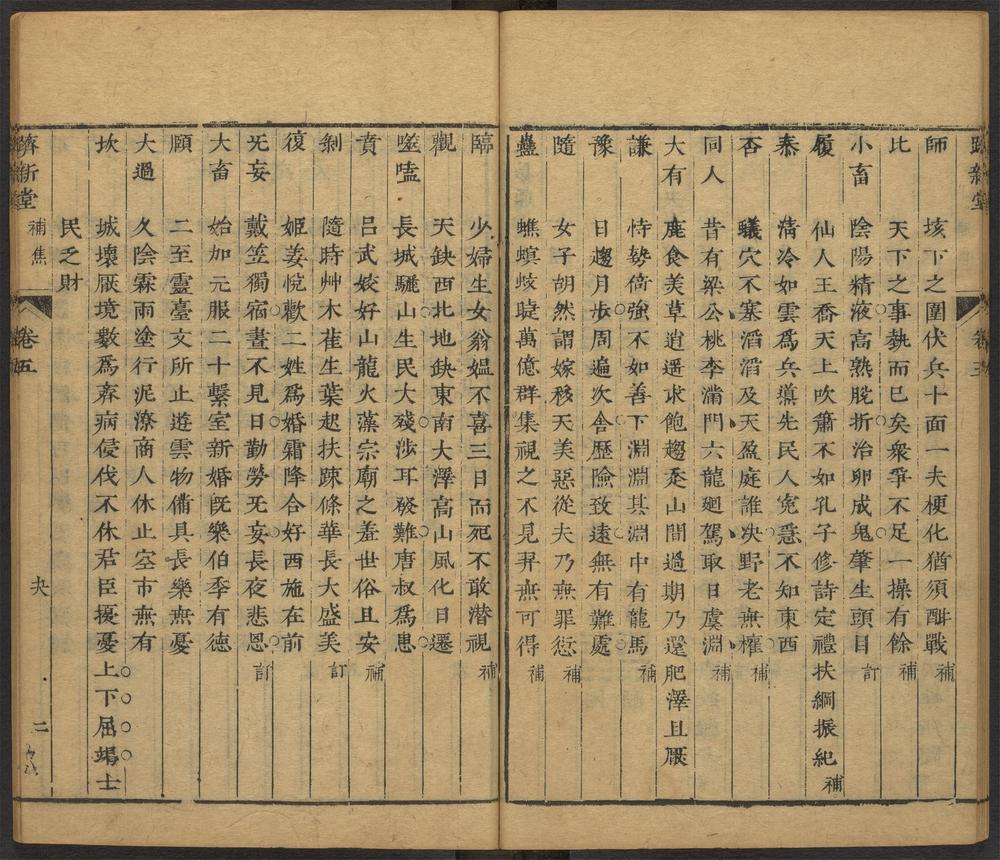 師　垓下之圍伏兵十面一夫梗化猶須酣戰補
比　天下之事勢而已矣衆爭不足一操有餘補
小畜　陰陽精液高熟脫折治卵成鬼肇生頭目訂
履　仙人王喬天上吹簫不如孔子修詩定禮扶綱振紀補
泰　清冷如雲爲兵導先民人寃急不知東西
否　蟻穴不塞滔滔及天盈庭誰決野老無權補
同人　昔有梁公桃李滿門六龍廻駕取日虞淵補
大有　鹿食美草逍遙求飽趨走山間過期乃還肥澤且厭
謙　恃勢倚強不如善下淵淵其淵中有龍馬補
豫　日趨月步周遍次舍歷險致遠無有難處
隨　女子胡然謂嫁移天美惡從夫乃無罪愆補
蠱　蟭螟蚑蝭萬億群集視之不見羿無可得補
臨　少婦生女翁媼不喜三日而死不敢潜視補
觀　天鈌西北地鈌東南大澤高山風化日遷
噬嗑　長城驪山生民大殘涉耳發難唐叔爲患
賁　呂武姣好山龍火藻宗廟之羞世俗且安補
剝　隨時艸木萑生葉起扶踈條華長大盛美訂
復　姬姜悅歡二姓爲婚霜降合好西施在前
无妄　戴笠獨宿晝不見日勤勞无妄長夜悲思訂
大畜　始加元服二十繫室新婚旣樂伯季有德
頤　二至靈臺文所止遊雲物備具長樂無憂
大過　久陰霖雨塗行泥潦商人休止空市無有
坎　城壞厭境數爲齋病侵伐不休君臣擾憂上下屈竭士
民之財
濟新堂　補焦　卷五　二